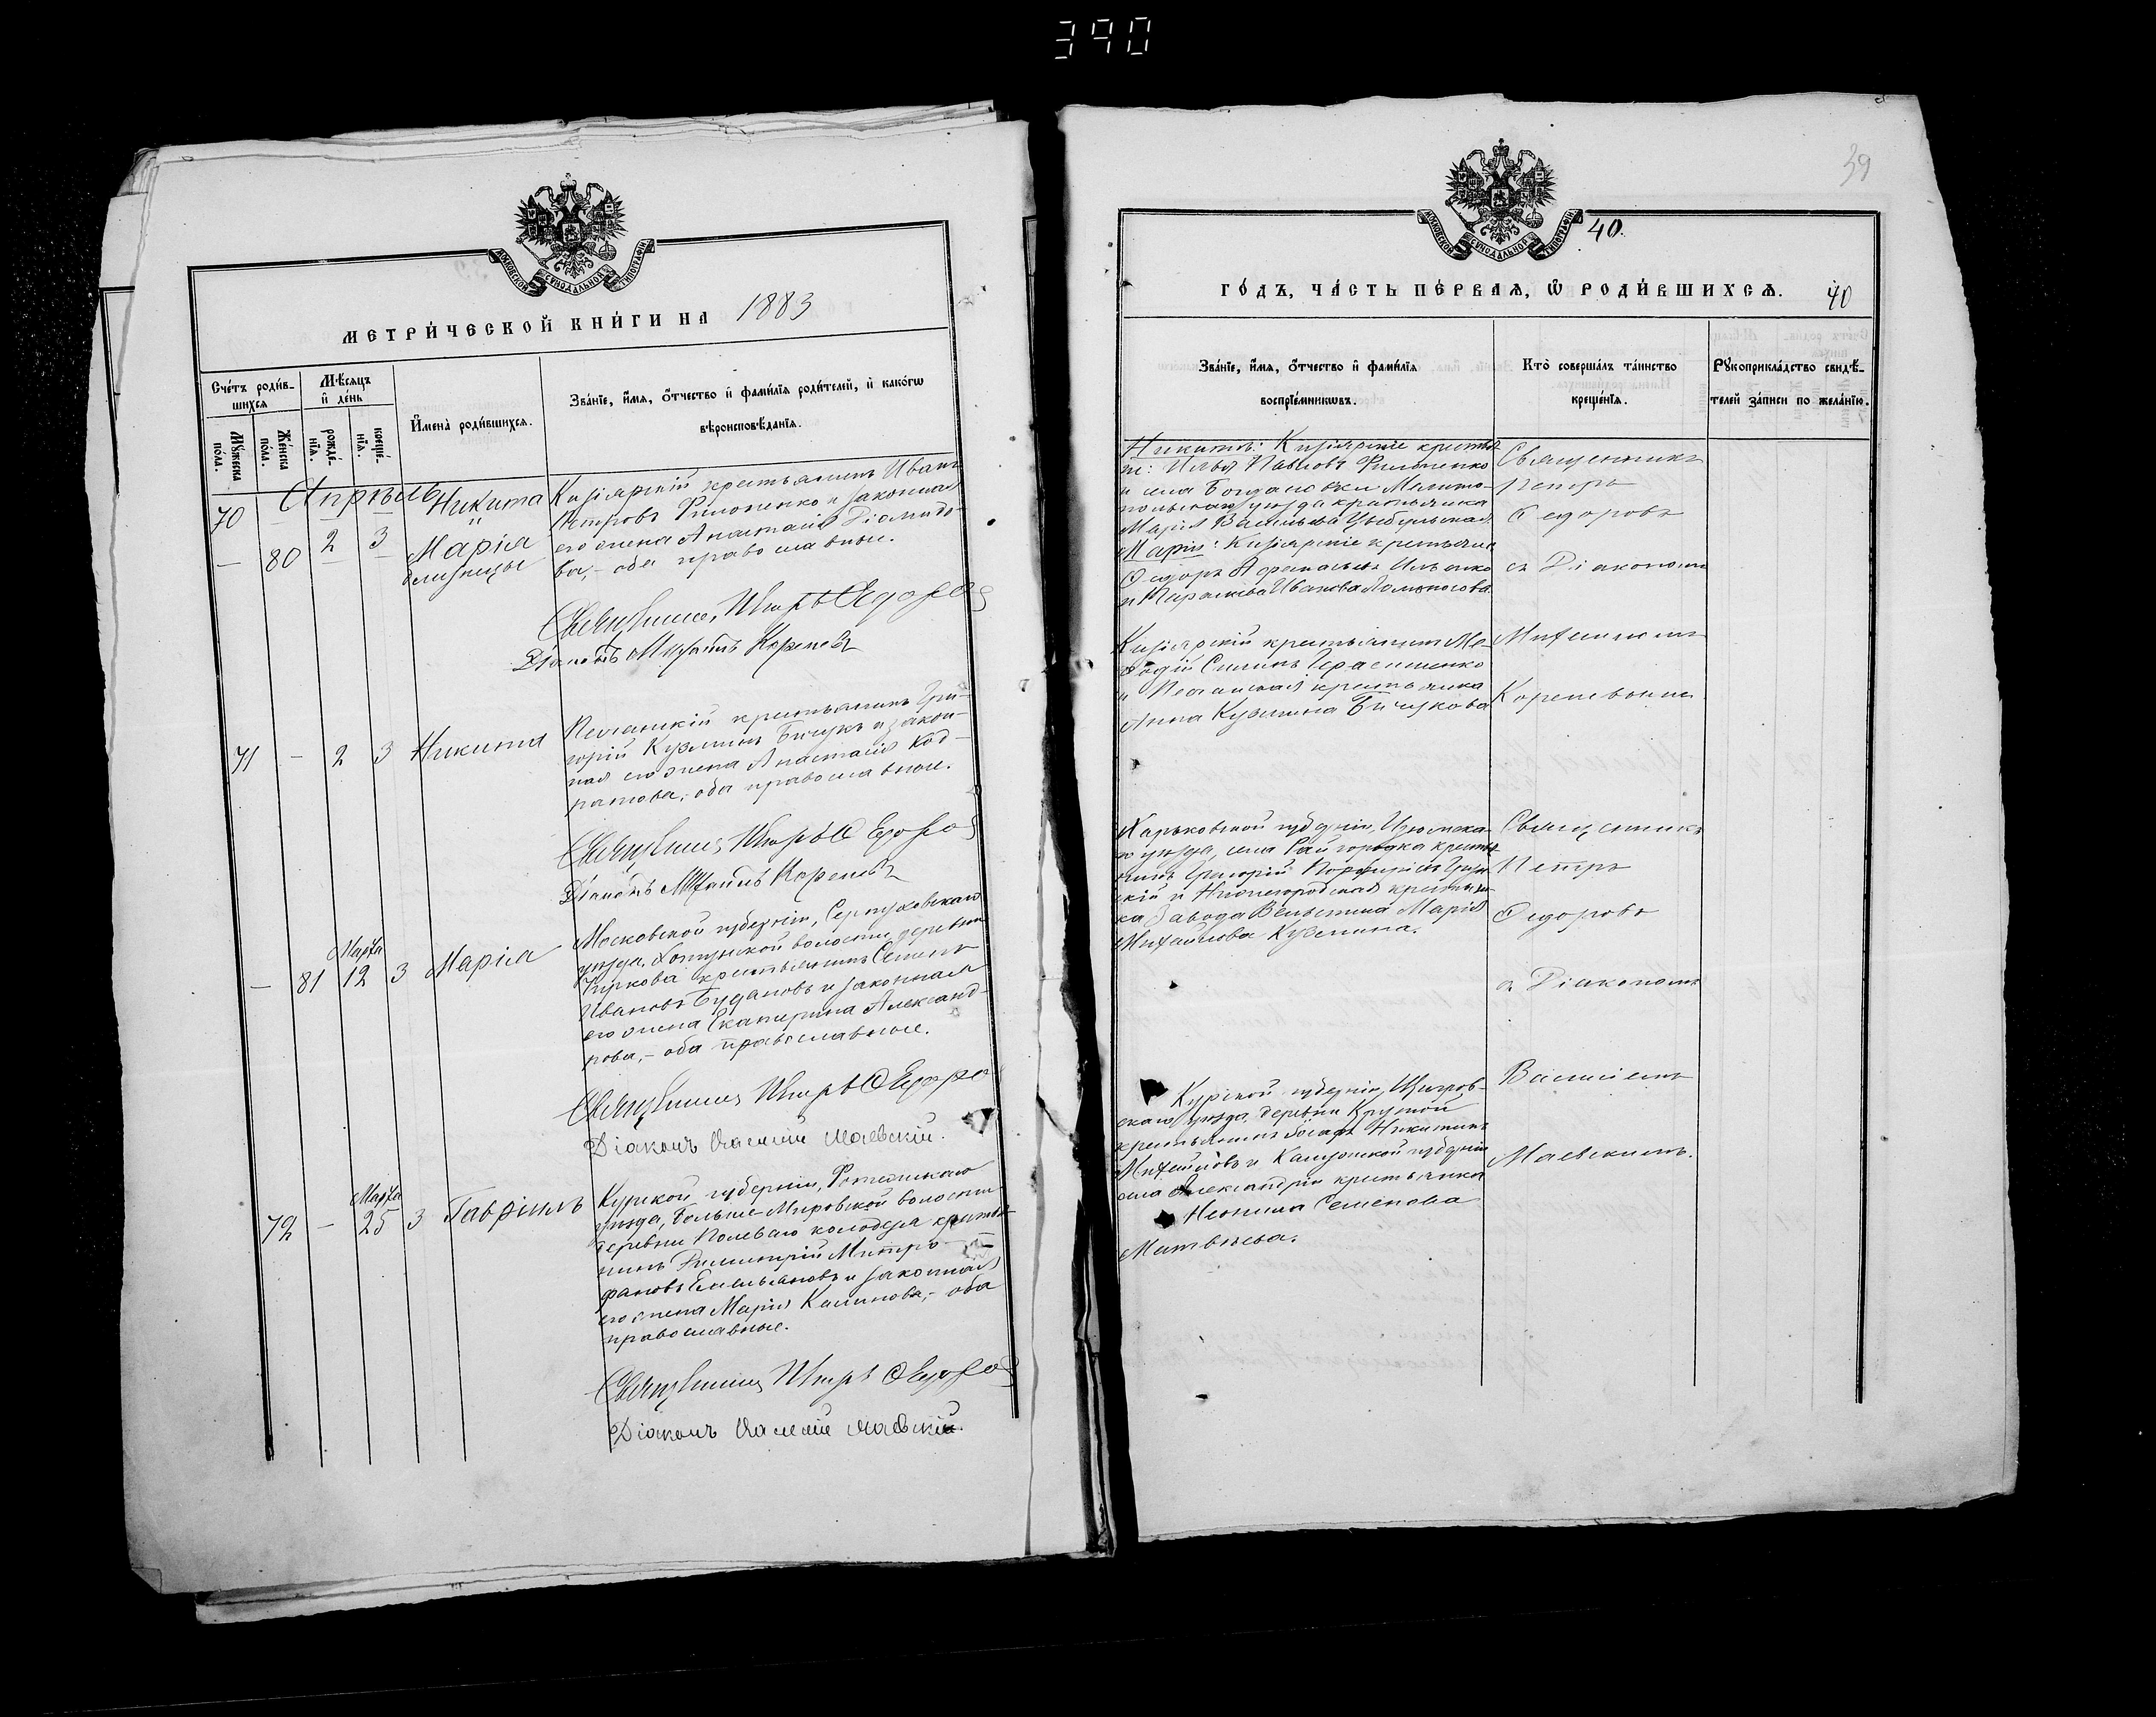 390
39
МОСКОВСКОЙ СѴНОДАЛЬНОЙ ТИПОГРАФІИ
МЕТРИ́ЧЕСКОЙ КНИ́ГИ НА 1883
Сче́тъ роди́в-
шихсѧ
Мѣ́сѧцъ
и҆ де́нь
Мꙋ́жеска
по́ла.
Же́нска
по́ла.
рожде́-
нїѧ.
креще́-
нїѧ.
И҆мена̀ роди́вшихсѧ.
Зва́нїе, и҆́мѧ, ѻ҆́тчество и҆ фами́лїѧ роди́телей, и҆ како́гѡ
вѣроисповѣ́данїѧ.
Апрѣль
70 — 2 3 Никита
— 80 Марія
близнецы
Кизіярскій крестьянинъ Иванъ
Петровъ Филоненко и законная
его жена Анастасія Діомидо-
ва, – оба православные.
Священникъ Петръ Ѳедоровъ
Діаконъ Михаилъ Кореневъ
71 — 2 3 Никита
Песчанскій крестьянинъ Гри-
горій Кузминъ Бичукъ и закон-
ная его жена Анастасія Код-
ратова, оба православные.
Священникъ Петръ Ѳедоровъ
Діаконъ Михаилъ Кореневъ
Марта
— 81 12 3 Марія
Московской губерніи, Серпуховскаго
уѣзда, Хатунской волости, деревни
крестьянинъ Семенъ
Ивановъ Будановъ и законная
его жена Екатерина Александ-
рова, – оба православные.
Священникъ Петръ Ѳедоровъ
Діаконъ Василій Маевскій.
Марта
72 — 25 3 Гавріилъ
Курской губерніи,
уѣзда, Больше- волости
деревни Полеваго колодезя кресть-
нинъ Димитрій Митро-
фановъ Емельяновъ и законная
его жена Марія Калинова, – оба
православные.
Священникъ Петръ Ѳедоровъ
Діаконъ Василій Маевскій.
МОСКОВСКОЙ СѴНОДАЛЬНОЙ ТИПОГРАФІИ
40.
ГО́ДЪ, ЧА́СТЬ ПЕ́РВАѦ, Ѡ҆ РОДИ́ВШИХСѦ. 40
Зва́нїе, и҆́мѧ, ѻ҆́тчество и҆ фами́лїѧ
воспрїе́мникѡвъ.
Кто̀ соверша́лъ та́инство
креще́нїѧ.
Рꙋкоприкла́дство свидѣ́-
телей за́писи по жела́нїю.
Никиты: Кизіярскіе кресть-
не: Илья Павловъ Филоненко
и села Богдановки Мелито-
польскаго уѣзда крестьянка
Марія Васильева
Маріи: Кизіярскіе крестьяне
Ѳедоръ Афанасьевъ
и Параскева Иванова Ломоносова
Священникъ
Петръ
Ѳедоровъ
съ Діакономъ
Кизіярскій крестьянинъ Ме-
фодій Силинъ Герасименко
и Песчанская крестьянка
Анна Кузмина Бичукова
Михаиломъ
Кореневымъ
Харьковской губерніи, Изюмска-
го уѣзда, села Рай городка кресть-
нинъ Григорій
скій и Нижегородская крестьян-
ка завода Марія
Михайлова Кузмина.
Священникъ
Петръ
Ѳедоровъ
съ Діакономъ
Курской губерніи, Щигров-
скаго уѣзда, деревни Крутой
крестьянинъ Никитинъ
Михайловъ и Калужской губерніи
села Александріи крестьянка
Неонила Семенова
Матвѣева.
Василіемъ
Маевскимъ.